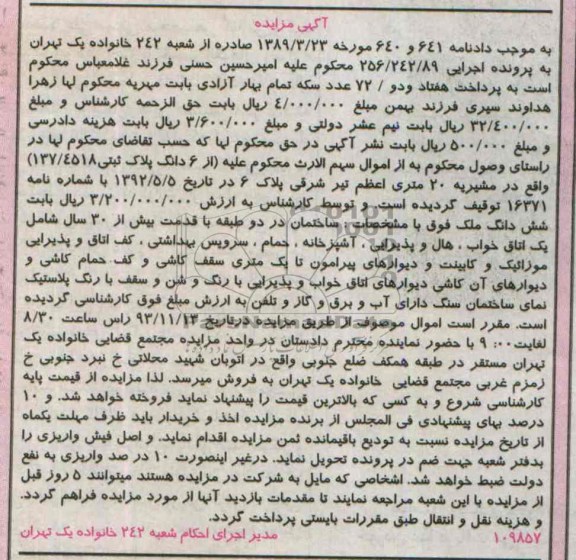 آگهی مزایده
به موجب دادنامه ۶۴۱ و ۶۴۰ مورخه ۱۳۸۹/۳/۲۳ صادره از شعبه ۲۴۲ خانواده یک تهران
به پرونده اجرایی ۲۵۶/۲۴۲/۸۹ محکوم علیه امیرحسین حسنی فرزند غلامعباس محکوم
است به پرداخت هفتاد ودو / ۷۲ عدد سکه تمام بهار آزادی بابت مهریه محکوم لها زهرا
هداوند سپری فرزند بهمن مبلغ ۴/۰۰۰/۰۰۰ ریال بابت حق الزحمه کارشناس و مبلغ
۳۲/۴۰۰/۰۰۰ ریال بابت نیم عشر دولتی و مبلغ ۳/۶۰۰/۰۰۰ ریال بابت هزینه دادرسی
و مبلغ ۵۰۰/۰۰۰ ریال بابت نشر آگهی در حق محکوم لها که حسب تقاضای محکوم لها در
راستای وصول محکوم به از اموال سهم الارث محکوم علیه (از ۶ دانگ پلاک ثبتی۱۳۷/۴۵۱۸)
واقع در مشیریه ۲۰ متری اعظم تیر شرقی پلاک ۶ در تاریخ ۱۳۹۲/۵/۵ با شماره نامه
۱۶۳۷۱ توقیف گردیده است. و توسط کارشناس به ارزش ۳/۲۰۰/۰۰۰/۰۰۰ ریال بابت
شش دانگ ملک فوق با مشخصات ساختمان در دو طبقه با قدمت بیش از ۳۰ سال شامل
یک اتاق خواب ، هال و پذیرایی ، آشپزخانه ، حمام ، سرویس بهداشتی ، کف اتاق و پذیرایی
موزائیک و کابینت و دیوارهای پیرامون تا یک متری سقف کاشی و کف حمام کاشی و
دیوارهای آن کاشی دیوارهای اتاق خواب و پذیرایی با رنگ و شن و سقف با رنگ پلاستیک
نمای ساختمان سنگ دارای آب و برق و گاز و تلفن به ارزش مبلغ فوق کارشناسی گردیده
است. مقرر است اموال موصوف از طریق مزایده درتاریخ ۹۳/۱۱/۱۳ راس ساعت ۸/۳۰
لغایت۰۰: ۹ با حضور نماینده محترم دادستان در واحد مزایده مجتمع قضایی خانواده یک
تهران مستقر در طبقه همکف ضلع جنوبی واقع در اتوبان شهید محلاتی خ نبرد جنوبی خ
زمزم غربی مجتمع قضایی خانواده یک تهران به فروش میرسد. لذا مزایده از قیمت پایه
کارشناسی شروع و به کسی که بالاترین قیمت را پیشنهاد نماید فروخته خواهد شد. و ۱۰
درصد بهای پیشنهادی فی المجلس از برنده مزایده اخذ و خریدار باید ظرف مهلت یکماه
از تاریخ مزایده نسبت به تودیع باقیمانده ثمن مزایده اقدام نماید. و اصل فیش واریزی را
بدفتر شعبه جهت ضم در پرونده تحویل نماید. درغیر اینصورت ۱۰ در صد واریزی به نفع
دولت ضبط خواهد شد. اشخاصی که مایل به شرکت در مزایده هستند میتوانند ۵ روز قبل
از مزایده با این شعبه مراجعه نمایند تا مقدمات بازدید آنها از مورد مزایده فراهم گردد.
و هزینه نقل و انتقال طبق مقررات بایستی پرداخت گردد.
۱۰۹۸۵۷ مدیر اجرای احکام شعبه ۲۴۲ خانواده یک تهران